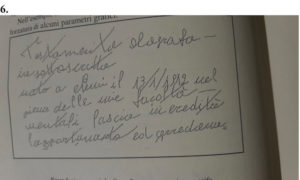 6.
Nell'esempio
formatura di alcuni parametri grafici.
Testamento olografo –
io sottoscritto
nato a il 13/1/1992 nel
pieno delle mie facoltà
mentali lascio in eredità
l'appartamento ed